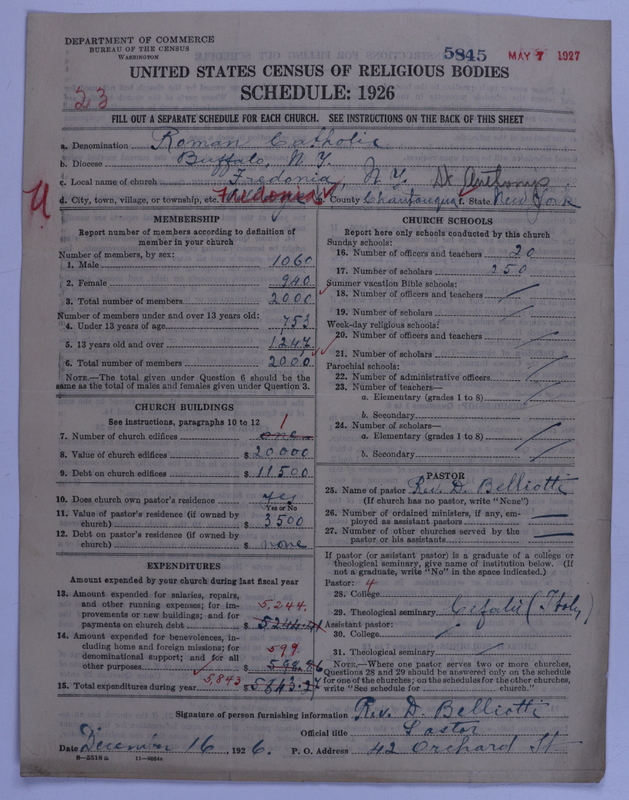 DEPARTMENT OF COMMERCE
BUREAU OF THE CENSUS
WASHINGTON
5845 MAY 7 1927
UNITED STATES CENSUS OF RELIGIOUS BODIES
SCHEDULE: 1926
23
FILL OUT A SEPARATE SCHEDULE FOR EACH CHURCH. SEE INSTRUCTIONS ON THE BACK OF THIS SHEET
a. Denomination Roman Catholic
b. Diocese Buffalo, N.Y.
c. Local name of church Fredonia, N.Y. St Anthonys
d. City, town, village, or township, etc. Fredonia e. County Chautauqua f. State New York
MEMBERSHIP
Report number of members according to definition of
member in your church
Number of members, by sex:
1. Male 1060
2. Female 940
3. Total number of members 2000
Number of members under and over 13 years old:
4. Under 13 years of age 753
5. 13 years old and over 1247
6. Total number of members 2000
NOTE.—The total given under Question 6 should be the
same as the total of males and females given under Question 3.
CHURCH BUILDINGS
See instructions, paragraphs 10 to 12
1
7. Number of church edifices one
8. Value of church edifices $ 20,000
9. Debt on church edifices $ 11500
10. Does church own pastor's residence yes
Yes or No
11. Value of pastor's residence (if owned by
church) $ 3500
12. Debt on pastor's residence (if owned by
church) $ none
EXPENDITURES
Amount expended by your church during last fiscal year
13. Amount expended for salaries, repairs,
and other running expenses; for im- 5,244.
provements or new buildings; and for
payments on church debt $ 5244.41
14. Amount expended for benevolences, in-
cluding home and foreign missions; for 599
denominational support; and for all
other purposes $ 598.86
15. Total expenditures during year 5,843 $ 5843.27
CHURCH SCHOOLS
Report here only schools conducted by this church
Sunday schools:
16. Number of officers and teachers 20
17. Number of scholars 250
Summer vacation Bible schools:
18. Number of officers and teachers
19. Number of scholars
Week-day religious schools:
20. Number of officers and teachers
21. Number of scholars
Parochial schools:
22. Number of administrative officers
23. Number of teachers—
a. Elementary (grades 1 to 8)
b. Secondary
24. Number of scholars—
a. Elementary (grades 1 to 8)
b. Secondary
PASTOR
25. Name of pastor Rev. D. Belliotti
(If church has no pastor, write "None")
26. Number of ordained ministers, if any, em-
ployed as assistant pastors
27. Number of other churches served by the
pastor or his assistants
If pastor (or assistant pastor) is a graduate of a college or
theological seminary, give name of institution below. (If
not a graduate, write "No" in the space indicated.)
Pastor: 4
28. College
29. Theological seminary Cefalù (Italy)
Assistant pastor:
30. College
31. Theological seminary
NOTE.—Where one pastor serves two or more churches,
Questions 28 and 29 should be answered only on the schedule
for one of the churches; on the schedules for the other churches,
write "See schedule for church."
Signature of person furnishing information Rev. D. Belliotti
Official title Pastor
Date December 16, 1926. P. O. Address 42 Orchard St
8—5518a 11—8664a